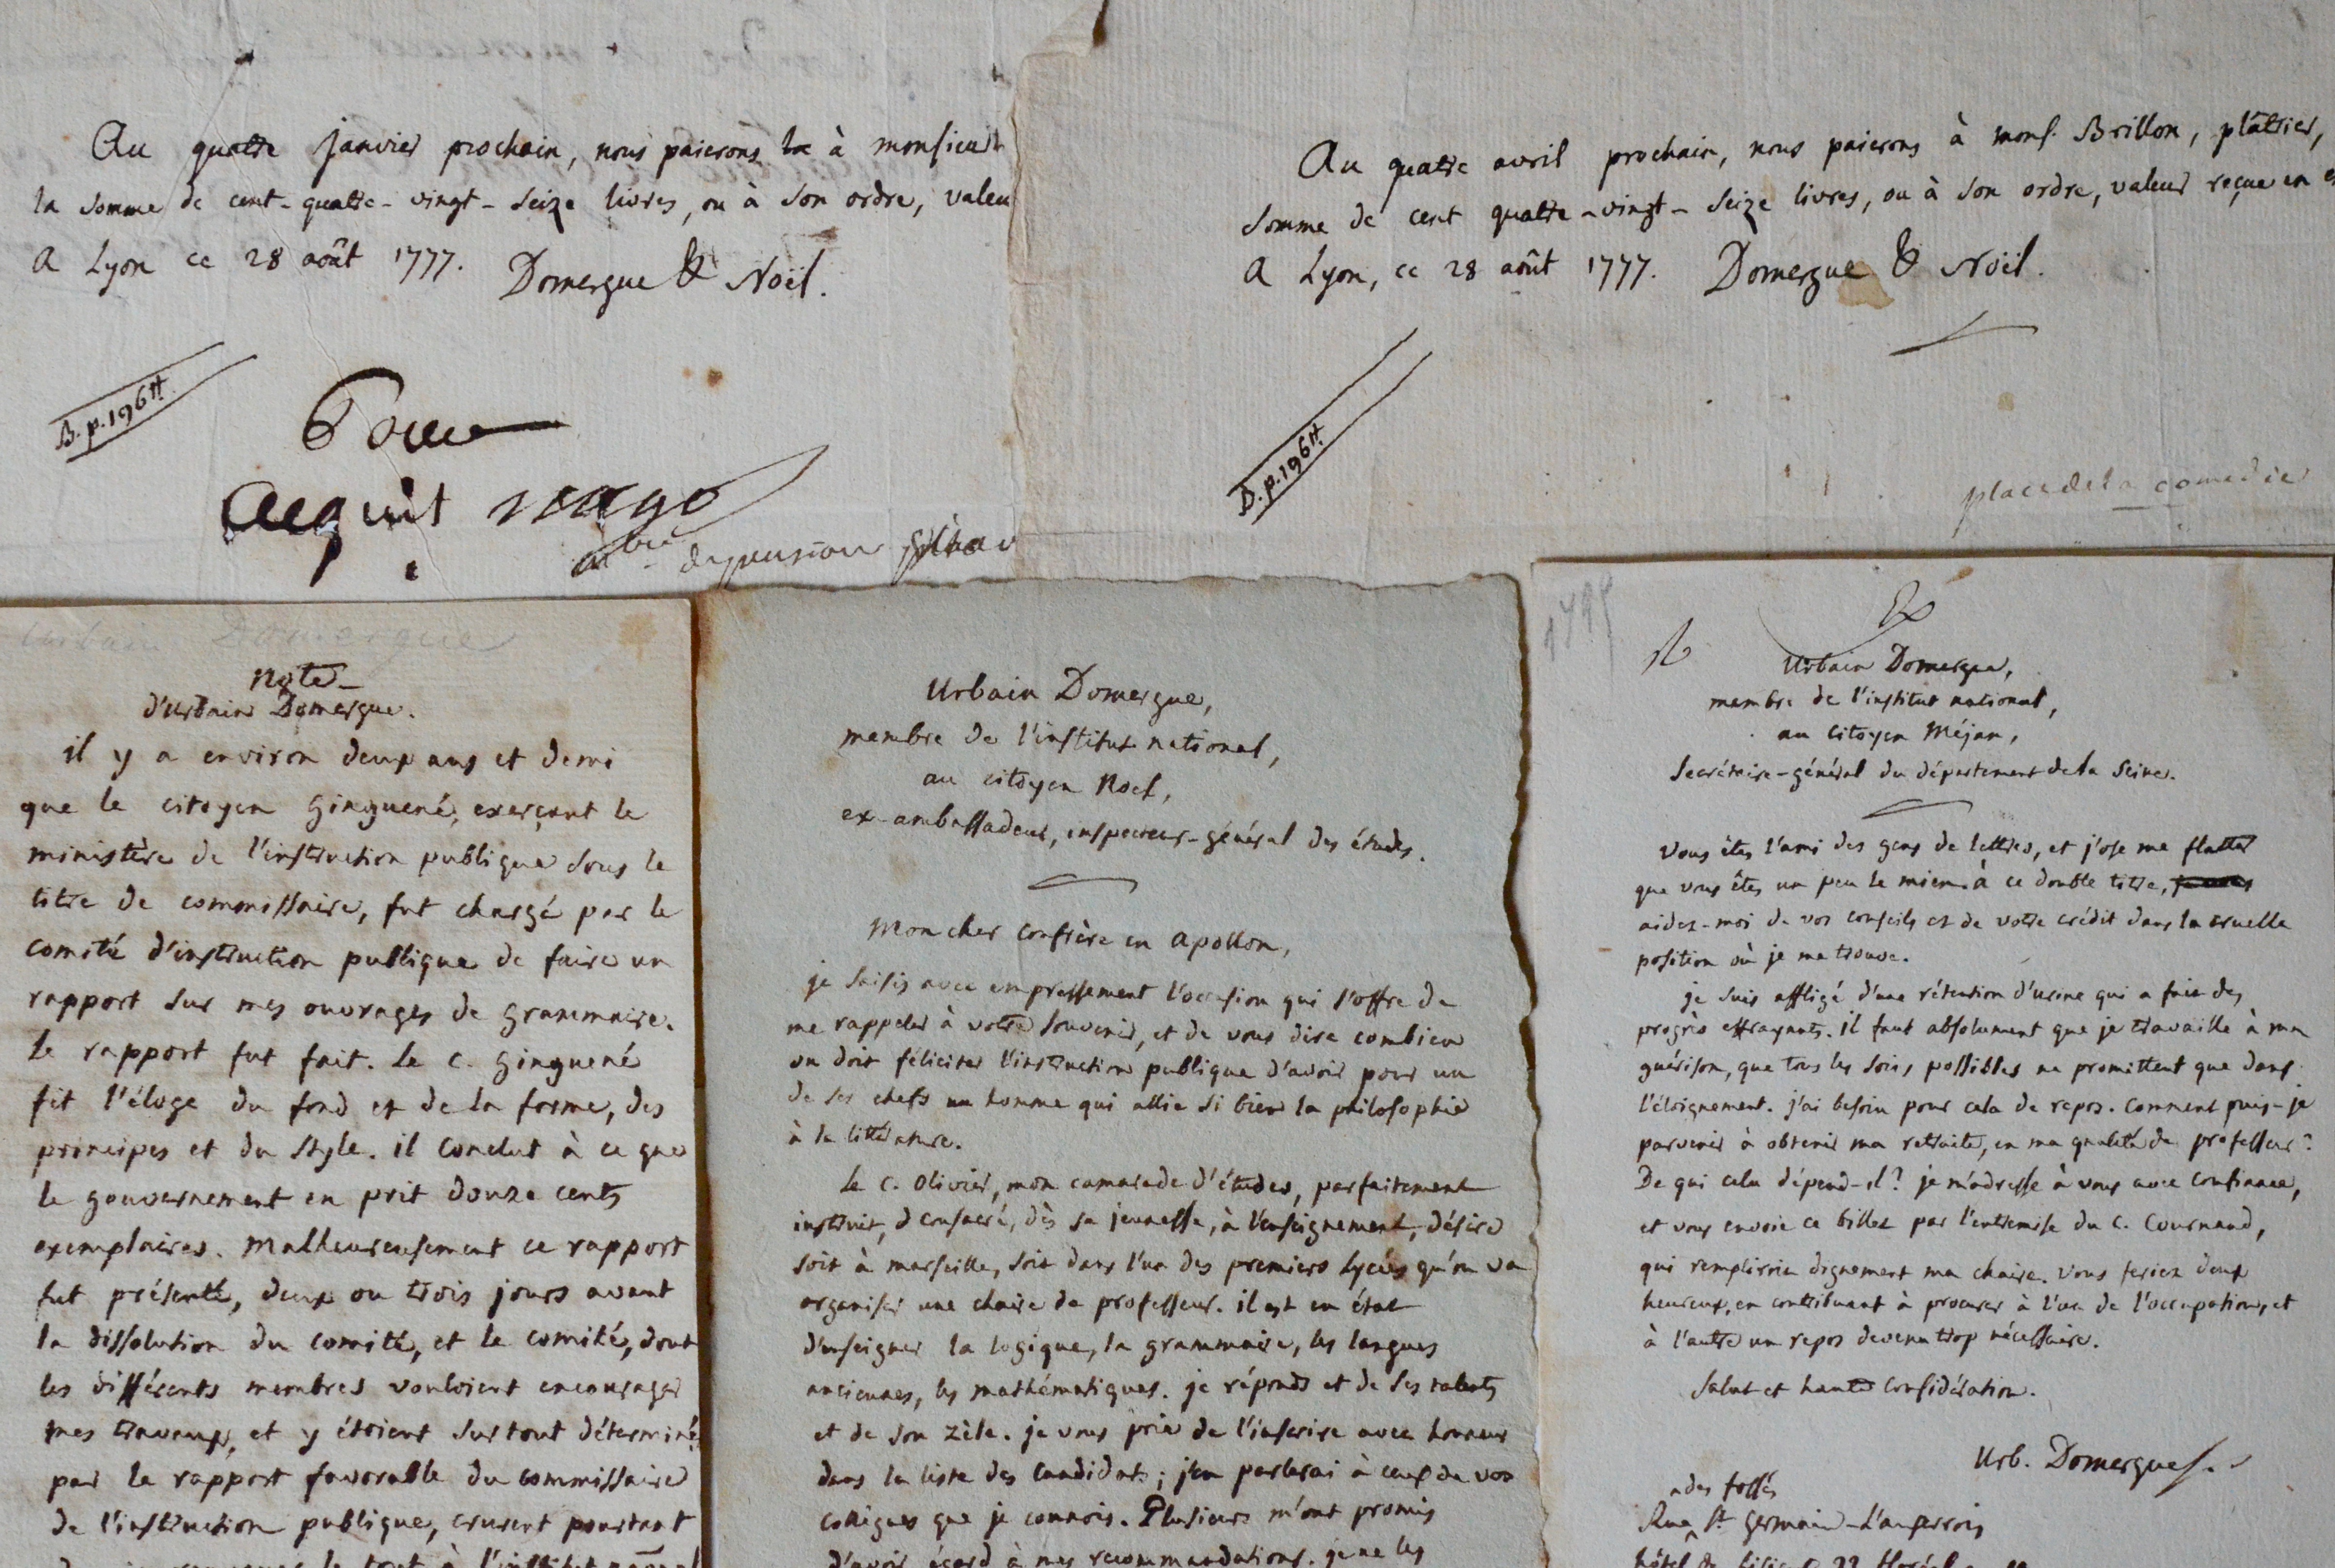 Au quatre janvier prochain, nous paierons à monsieur
la somme de cent-quatre-vingt-seize livres, ou à son ordre, valeu
A Lyon ce 28 août 1777. Domergue & Noël.
B.p.196#
Pour
acquit
Au quatre avril prochain, nous paierons à mons. Brillon, plâtrier,
somme de cent quatre-vingt-seize livres, ou à son ordre, valeur reçue en
A Lyon, ce 28 août 1777. Domergue & Noël.
B.p.196#
place de la comedie
Urbain Domergue
Note
d'Urbain Domergue.
il y a environ deux ans et demi
que le citoyen Ginguené, exerçant le
ministère de l'instruction publique sous le
titre de commissaire, fut chargé par le
comité d'instruction publique de faire un
rapport sur mes ouvrages de grammaire.
le rapport fut fait. le c. Ginguené
fit l'éloge du fond et de la forme, des
principes et du style. il conclut à ce que
le gouvernement en prît douze cents
exemplaires. Malheureusement ce rapport
fut présenté, deux ou trois jours avant
la dissolution du comité, et le comité, dont
les différents membres vouloient encourager
mes travaux, et y étoient surtout déterminé
par le rapport favorable du commissaire
de l'instruction publique, crurent pourtant
le tout à l'institut
Urbain Domergue,
membre de l'institut national,
au citoyen Noel,
ex-ambassadeur, inspecteur-général des études.
Mon cher confrère en Apollon,
je saisis avec empressement l'occasion qui s'offre de
me rappeler à votre souvenir, et de vous dire combien
on doit féliciter l'instruction publique d'avoir pour un
de ses chefs un homme qui allie si bien la philosophie
à la littérature.
le c. Olivier, mon camarade d'études, parfaitement
instruit, consacré, dès sa jeunesse, à l'enseignement, désire
soit à marseille, soit dans l'un des premiers lycées qu'on va
organiser une chaire de professeur. il est en état
d'enseigner la logique, la grammaire, les langues
anciennes, les mathématiques. je réponds et de ses talents
et de son zèle. je vous prie de l'inscrire avec honneur
dans la liste des candidats ; j'en parlerai à ceux de vos
collègues que je connois. Plusieurs m'ont promis
d'avoir égard à mes recommandations. je ne les
Urbain Domergue,
membre de l'institut national,
au citoyen Méjan,
Secrétaire-général du département de la Seine.
Vous êtes l'ami des gens de lettres, et j'ose me flatter
que vous êtes un peu le mien. à ce double titre,
aidez-moi de vos conseils et de votre crédit dans la cruelle
position où je me trouve.
je suis affligé d'une rétention d'urine qui a fait des
progrès effrayants. il faut absolument que je travaille à ma
guérison, que tous les soins possibles ne promettent que dans
l'éloignement. j'ai besoin pour cela de repos. comment puis-je
parvenir à obtenir ma retraite, en ma qualité de professeur ?
De qui cela dépend-il ? je m'adresse à vous avec confiance,
et vous envoie ce billet par l'entremise du c. Cournand,
qui rempliroit dignement ma chaire. vous feriez deux
heureux, en contribuant à procurer à l'un de l'occupation, et
à l'autre un repos devenu trop nécessaire.
Salut et haute considération.
Urb. Domergue.
des fossés
Rue St Germain-L'auxerrois
hôtel